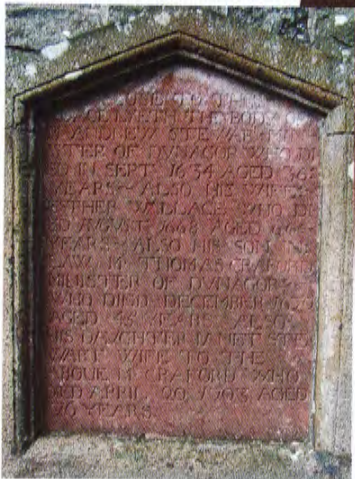 CLOSE TO THIS
PLACE LYETH THE BODY OF
M ANDREW STEWART MIN
ISTER OF DVNAGOR WHO DI
ED IN SEPT 1634 AGED
YEARS ALSO HIS WIFE
ESTHER WALLACE WHO DI
ED AVGVST 1668 AGED
YEARS ALSO HIS SON IN
LAW M THOMAS CRAFORD
MINISTER OF DVNAGOR
WHO DIED DECEMBER
AGED 45 YEARS ALSO
HIS DAUGHTER IANET STE
WART WIFE TO THE
ABOUE M CRAFORD WHO
DIED APRIL 20 1703 AGED
YEARS